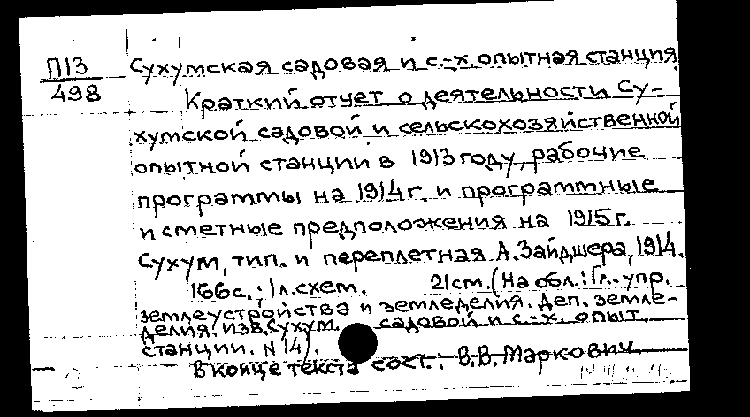 П13
498
Сухумская садовая и с.-х. опытная станция
Краткий отчет о деятельности Су-
хумской садовой и сельскохозяйственной
опытной станции в 1913 году, рабочие
программы на 1914 г. и программные
и сметные предположения на 1915 г.
Сухум, тип. и переплетная А. Зайдшера, 1914.
166 с.; 1 л. схем. 21 cm. (На обл.: Гл. упр.
землеустройства и земледелия. Деп. земле-
делия. Изв. Сухум. садовой и с.-х. опыт.
станции. N 14).
В конце текста сост.: В.В. Маркович